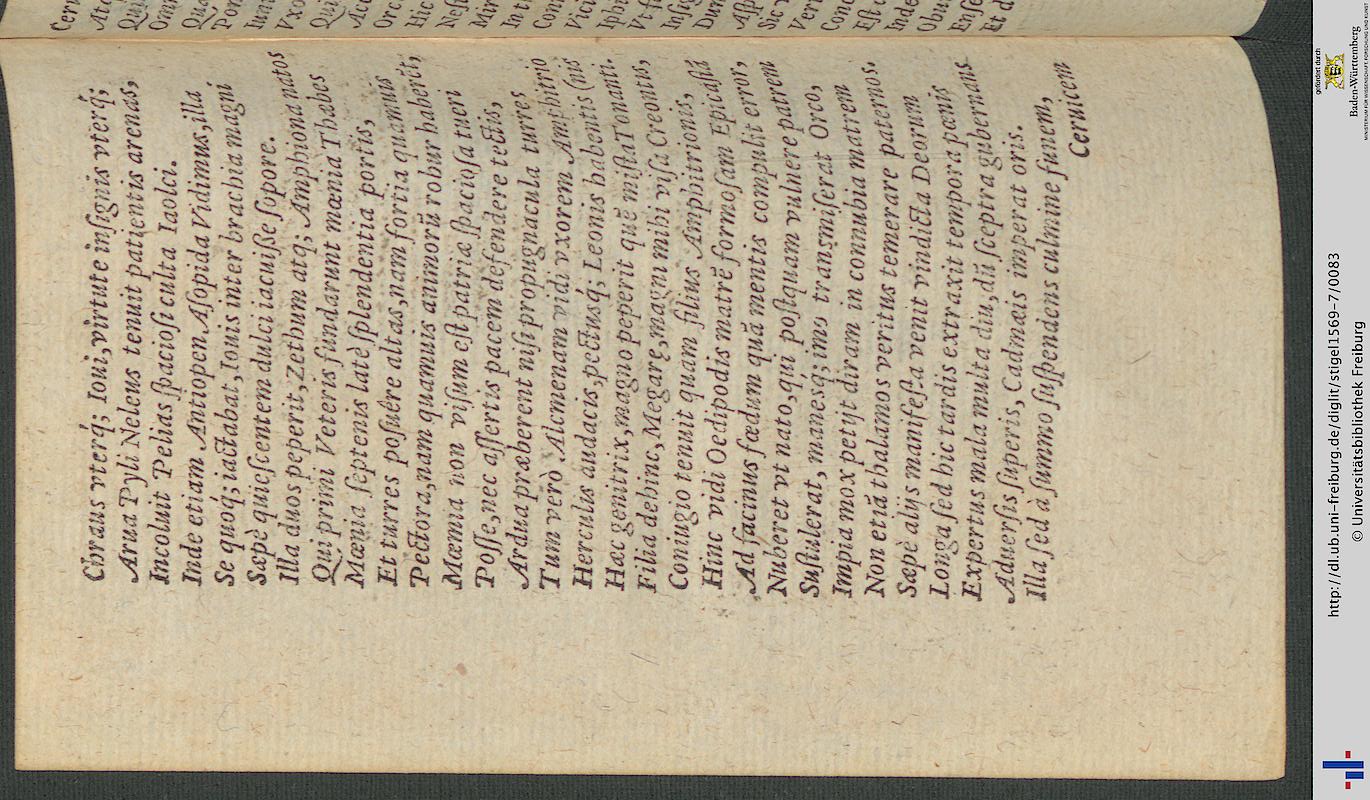 Charus vterq́; Ioui, virtute inſignis vterq́;
Arua Pyli Neleus tenuit patientis arenas,
Incoluit Pelias ſpacioſi culta Iaolci.
Inde etiam Antiopen Aſopida Vidimus, illa
Se quoq; iactabat, Iouis inter brachia magni
Sæpè quieſcentem dulci iacuiſſe ſopore.
Illa duos peperit, Zethum atq; Amphiona natos
Qui primi Veteris fundarunt mœnia Thabes
Mœnia ſeptenis latè ſplendentia portis,
Et turres poſuêre altas, nam fortia quamuis
Pectora, nam quamuis animorũ robur haberẽt,
Mœmia non viſum eſt patriæ ſpacioſa tueri
Poſſe, nec aſſertis pacem defendere tectis,
Ardua præberent niſi propugnacula turres
Tum verò Alcmenam vidi vxorem Amphitrio
Herculis audacis, pectusq́; Leonis habentis (nis
Hæc genitrix, magno peperit quẽ miſta Tonanti.
Filia dehinc, Megaræ, magni mihi viſa Creontis,
Coniugio tenuit quam filius Amphitrionis,
Hinc vidi Oedipodis matrẽ formoſam Epicaſtã
Ad facinus fœdum quã mentis compulit error,
Nuberet vt nato, qui poſtquam vulnere patrem
Suſtulerat, manesq; imos transmiſerat Orco,
Impia mox petijt diram in connubia matrem
Non etiã thalamos veritus temerare paternos.
Sæpè alijs manifeſta venit vindicta Deorum
Longa ſed hic tardis extraxit tempora pœnis
Expertus mala multa diu, diĩ ſceptra gubernans
Aduerſis ſuperis, Cadmæis imperat oris.
Illa ſed à ſummo ſuſpendens culmine funem,
Ceruicem
gefördert durch
Baden-Württemberg
MINISTERIUM FÜR WISSENSCHAFT, FORSCHUNG UND KUNST
http://dl.ub.uni-freiburg.de/diglit/stigel1569-7/0083
© Universitätsbibliothek Freiburg